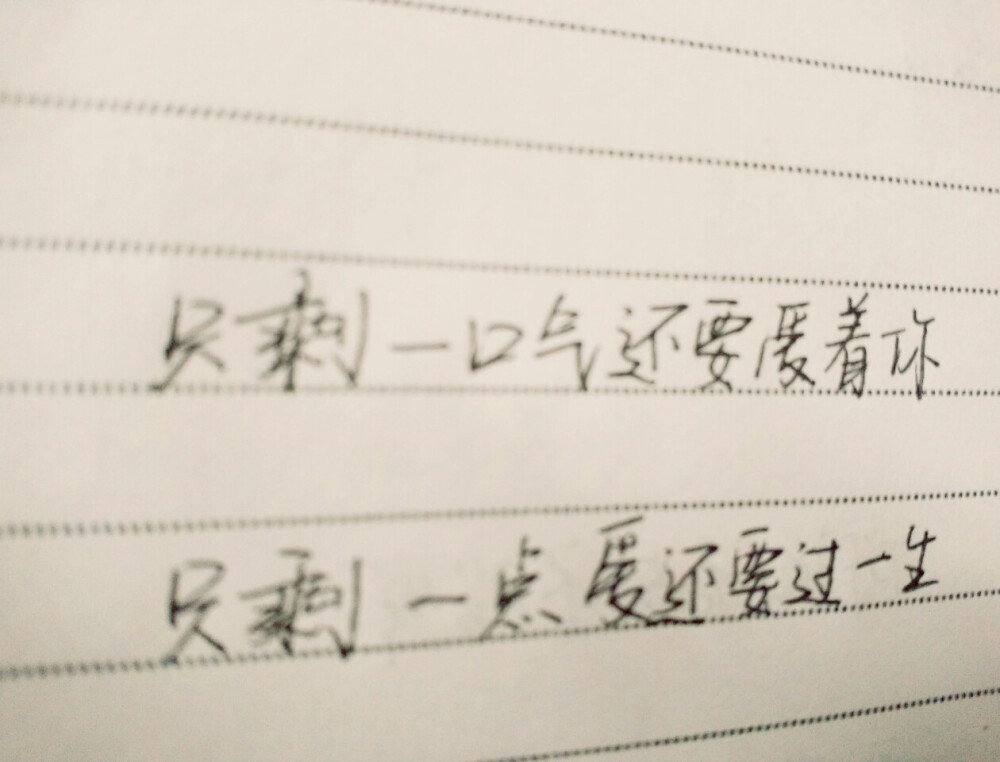 只剩一口气还要爱着你
只剩一点爱还要过一生